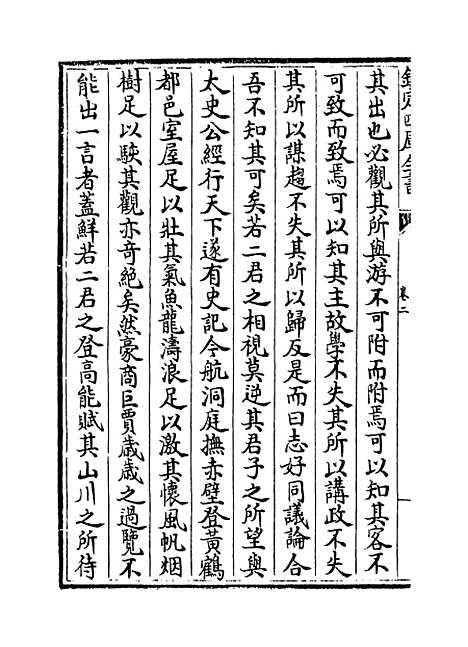 欽定四庫全書
卷二
其出也必觀其所與游不可附而附焉可以知其客不
可致而致焉可以知其主故學不失其所以講政不失
其所以謀趨不失其所以歸反是而曰志好同議論合
吾不知其可矣若二君之相視莫逆其君子之所望與
太史公經行天下遂有史記今航洞庭撫赤壁登黃鶴
都邑室屋足以壯其氣魚龍濤浪足以激其懷風帆烟
樹足以駛其觀亦奇絕矣然豪商巨賈歲歲之過覽不
能出一言者蓋鮮若二君之登高能賦其山川之所待